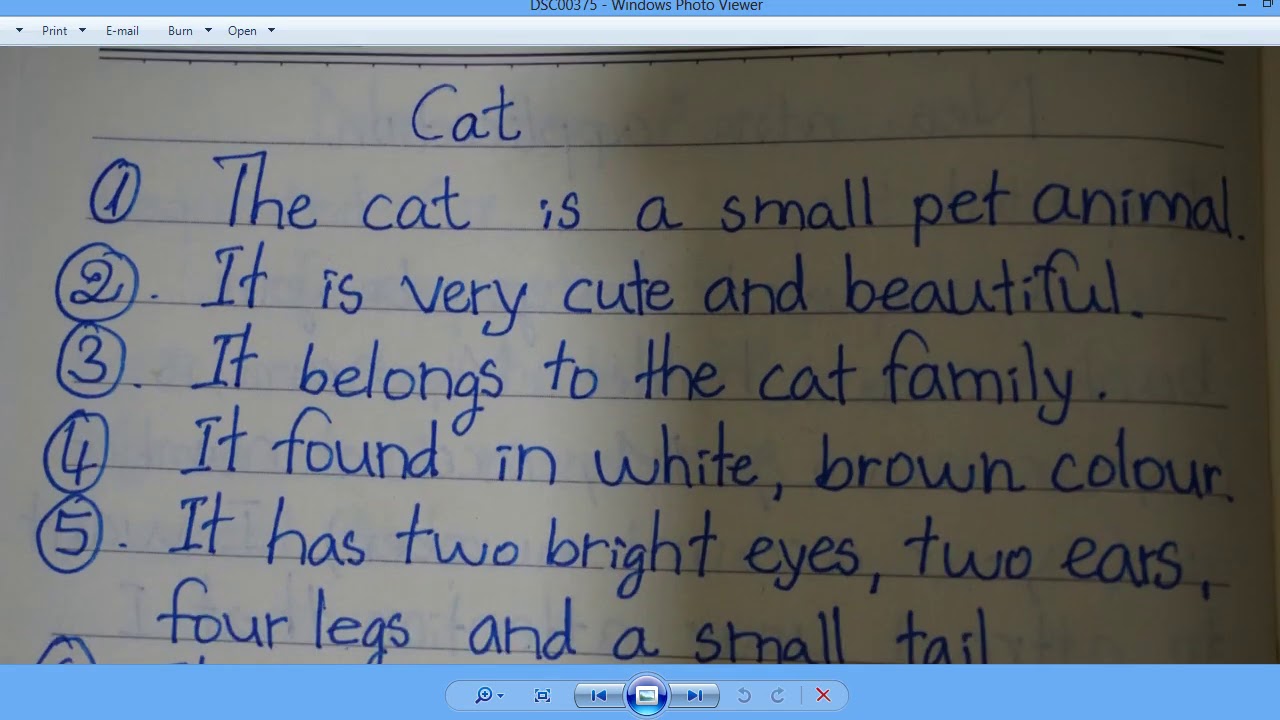 DSC00375 - Windows Photo Viewer
Print E-mail Burn Open
Cat
① The cat is a small pet animal.
②. It is very cute and beautiful.
③. It belongs to the cat family.
④ It found in white, brown colour.
⑤. It has two bright eyes, two ears,
four legs and a small tail